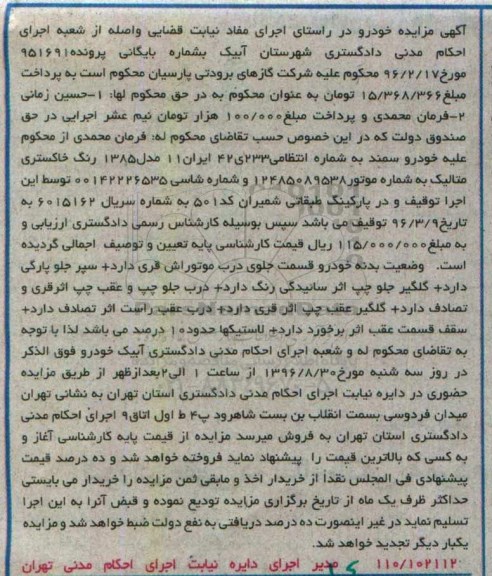 آگهی مزایده خودرو در راستای اجرای مفاد نیابت قضایی واصله از شعبه اجرای
احکام مدنی دادگستری شهرستان آبیک بشماره بایگانی پرونده۹۵۱۶۹۱
مورخ۹۶/۲/۱۷ محکوم علیه شرکت گازهای برودتی پارسیان محکوم است به پرداخت
مبلغ۱۵/۳۶۸/۳۶۶ تومان به عنوان محکوم به در حق محکوم لها: ۱-حسین زمانی
۲-فرمان محمدی و پرداخت مبلغ۱۰۰/۰۰۰ هزار تومان نیم عشر اجرایی در حق
صندوق دولت که در این خصوص حسب تقاضای محکوم له: فرمان محمدی از محکوم
علیه خودرو سمند به شماره انتظامی۲۳۳ی۴۲ ایران۱۱ مدل۱۳۸۵ رنگ خاکستری
متالیک به شماره موتور۱۲۴۸۵۰۸۹۵۳۸ و شماره شاسی ۰۰۱۴۲۲۲۶۵۳۵ توسط این
اجرا توقیف و در پارکینگ طبقاتی شمیران کد۵۰۱ به شماره سریال ۶۰۱۵۱۶۲ به
تاریخ۹۶/۳/۹ توقیف می باشد سپس بوسیله کارشناس رسمی دادگستری ارزیابی و
به مبلغ۱۱۵/۰۰۰/۰۰۰ ریال قیمت کارشناسی پایه تعیین و توصیف اجمالی گردیده
است. وضعیت بدنه خودرو قسمت جلوی درب موتوراش قری دارد+ سپر جلو پارگی
دارد+ گلگیر جلو چپ اثر سائیدگی رنگ دارد+ درب جلو چپ و عقب چپ اثرقری و
تصادف دارد+ گلگیر عقب چپ اثر قری دارد+ درب عقب راست اثر تصادف دارد+
سقف قسمت عقب اثر برخورد دارد+ لاستیکها حدود۱۰ درصد می باشد لذا با توجه
به تقاضای محکوم له و شعبه اجرای احکام مدنی دادگستری آبیک خودرو فوق الذکر
در روز سه شنبه مورخ۱۳۹۶/۸/۳۰ از ساعت ۱ الی۲بعدازظهر از طریق مزایده
حضوری در دایره نیابت اجرای احکام مدنی دادگستری استان تهران به نشانی تهران
میدان فردوسی بسمت انقلاب بن بست شاهرود پ۴ ط اول اتاق۹ اجرای احکام مدنی
دادگستری استان تهران به فروش میرسد مزایده از قیمت پایه کارشناسی آغاز و
به کسی که بالاترین قیمت را پیشنهاد نماید فروخته خواهد شد و ده درصد قیمت
پیشنهادی فی المجلس نقداً از خریدار اخذ و مابقی ثمن مزایده را خریدار می بایستی
حداکثر ظرف یک ماه از تاریخ برگزاری مزایده تودیع نموده و قبض آنرا به این اجرا
تسلیم نماید در غیر اینصورت ده درصد دریافتی به نفع دولت ضبط خواهد شد و مزایده
یکبار دیگر تجدید خواهد شد.
۱۱۰/۱۰۲۱۱۲۰ مدیر اجرای دایره نیابت اجرای احکام مدنی تهران